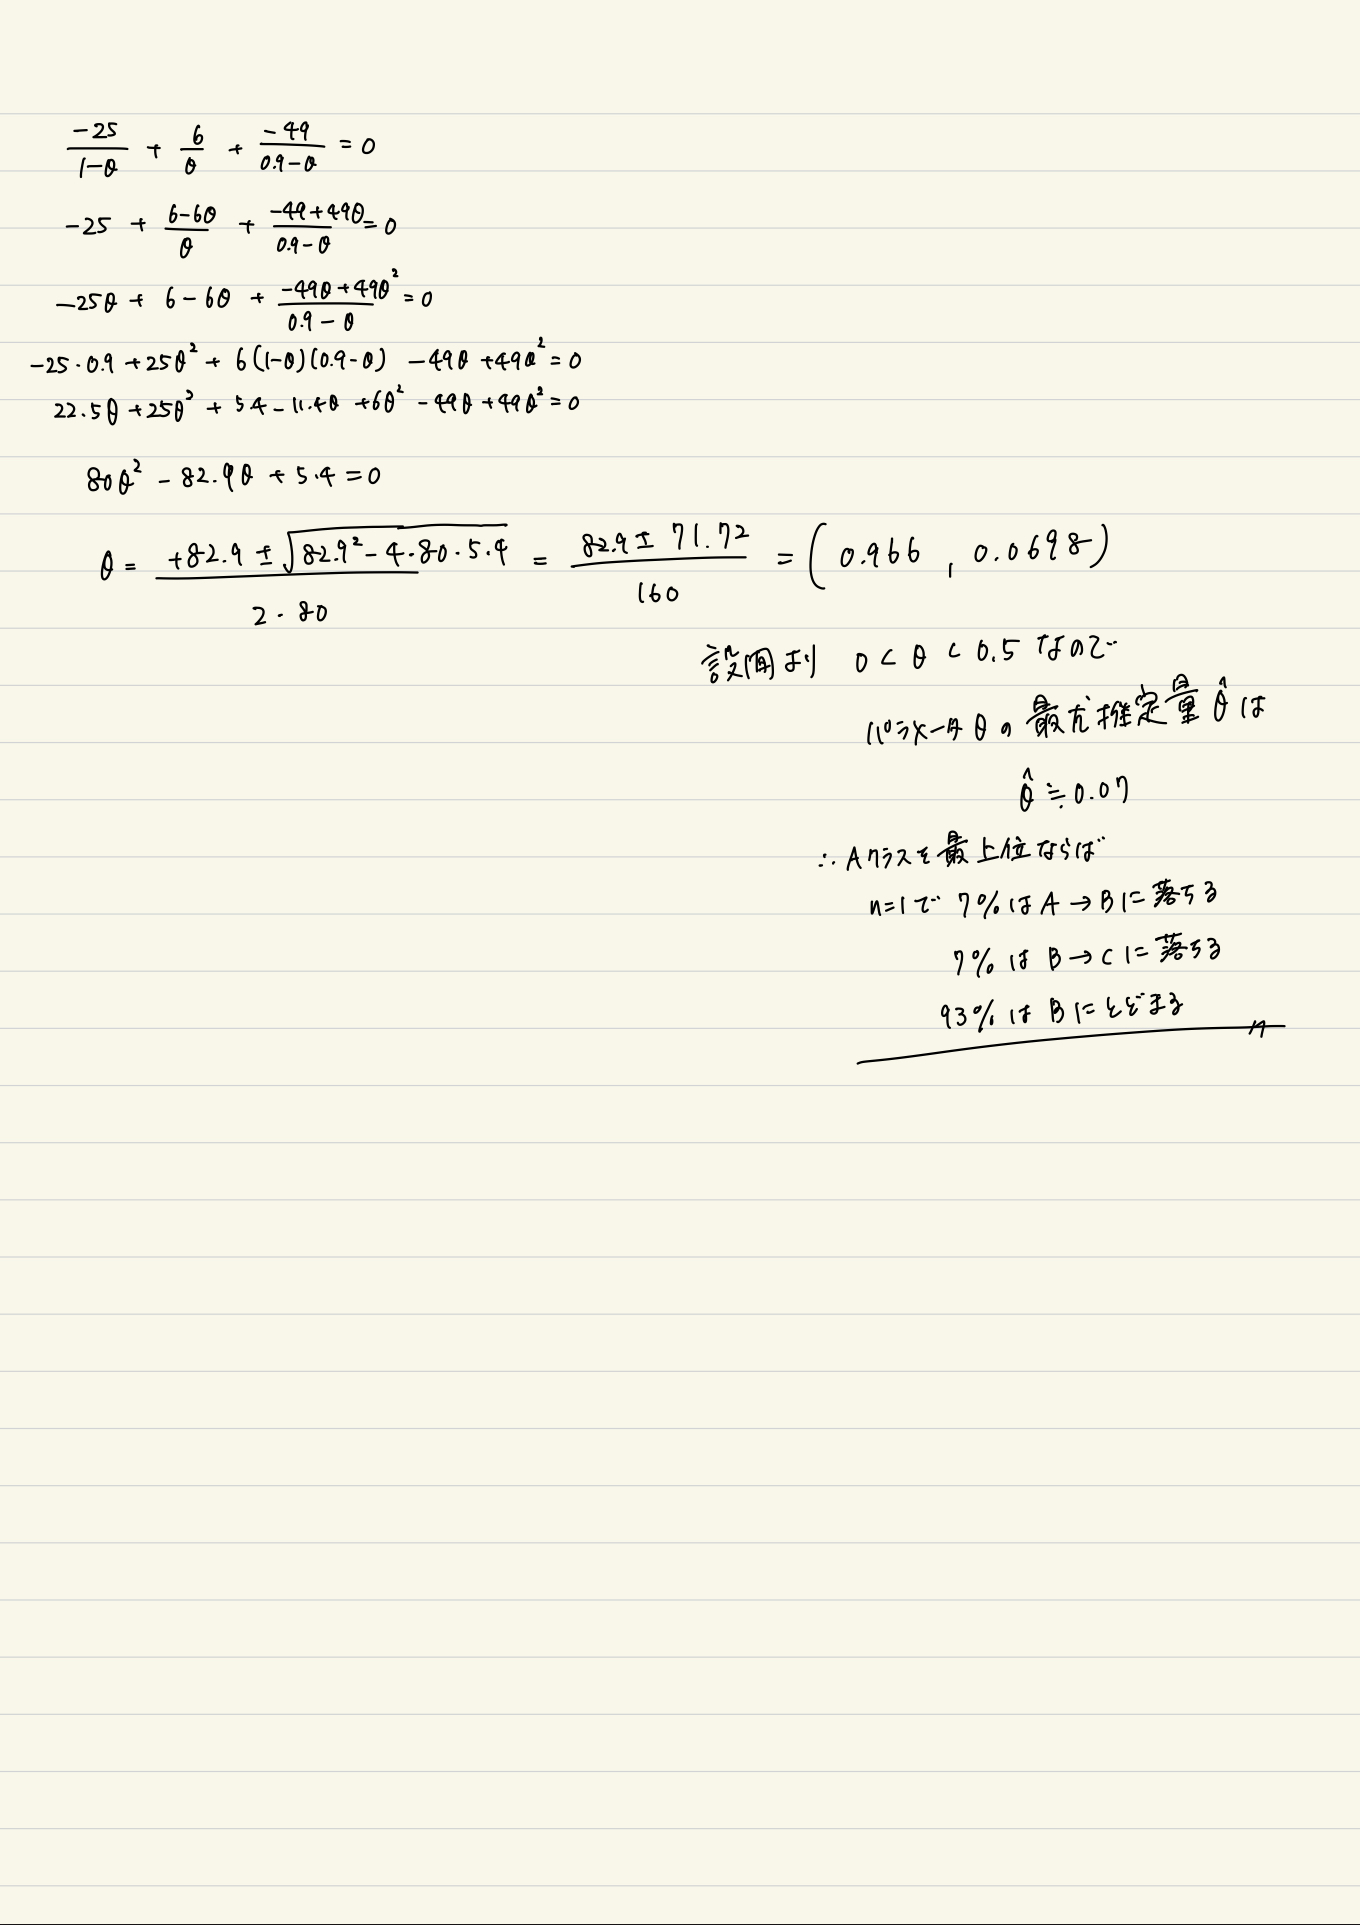 -25/(1-θ) + 6/θ + -49/(0.9-θ) = 0
-25 + (6-6θ)/θ + (-49+49θ)/(0.9-θ) = 0
-25θ + 6-6θ + (-49θ+49θ²)/(0.9-θ) = 0
-25·0.9 +25θ² + 6(1-θ)(0.9-θ) -49θ +49θ² = 0
22.5θ +25θ² + 5.4 - 11.4θ +6θ² -49θ +49θ² = 0
80θ² - 82.9θ + 5.4 = 0
θ = (+82.9 ± √(82.9² - 4·80·5.4))/(2·80) = (82.9 ± 71.72)/160 = (0.966 , 0.0698)
設問より 0 < θ < 0.5 なので
パラメータθの最尤推定量θ̂は
θ̂ ≒ 0.07
∴ Aクラスを最上位ならば
n=1で 7%はA→Bに落ちる
7%はB→Cに落ちる
93%はBにとどまる